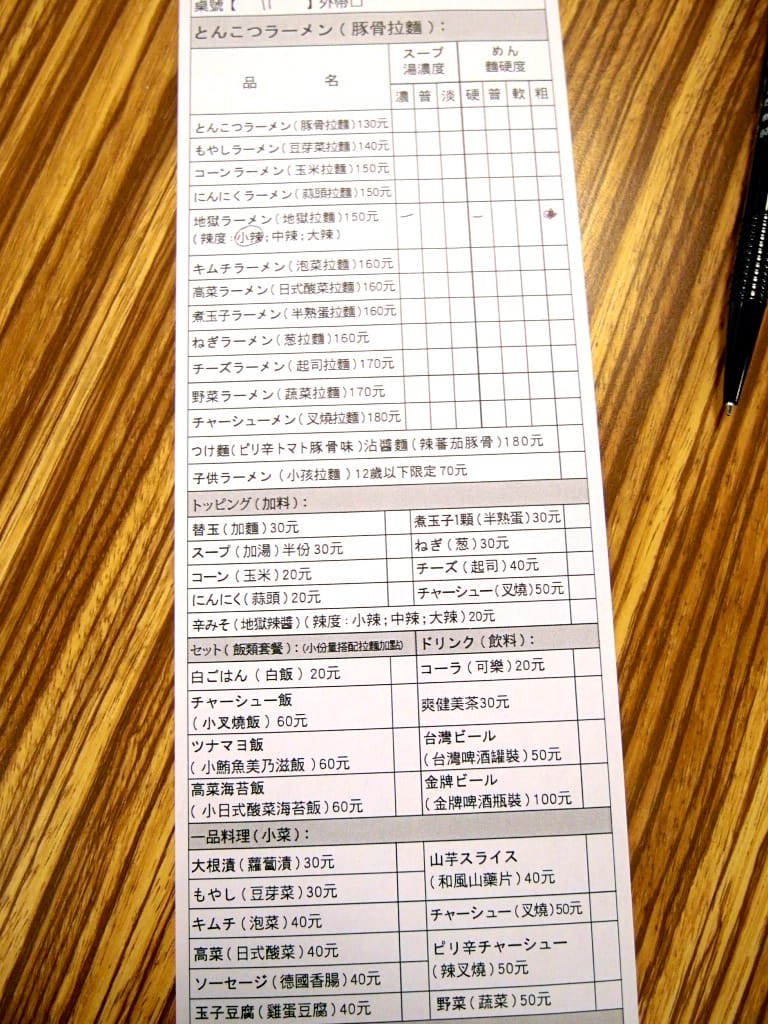 桌號【 11 】外帶□
とんこつラーメン(豚骨拉麵):
品 名
スープ
湯濃度
めん
麵硬度
濃 普 淡 硬 普 軟 粗
とんこつラーメン(豚骨拉麵)130元
もやしラーメン(豆芽菜拉麵)140元
コーンラーメン(玉米拉麵)150元
にんにくラーメン(蒜頭拉麵)150元
地獄ラーメン(地獄拉麵)150元
(辣度:小辣;中辣;大辣)
キムチラーメン(泡菜拉麵)160元
高菜ラーメン(日式酸菜拉麵)160元
煮玉子ラーメン(半熟蛋拉麵)160元
ねぎラーメン(葱拉麵)160元
チーズラーメン(起司拉麵)170元
野菜ラーメン(蔬菜拉麵)170元
チャーシューメン(叉燒拉麵)180元
つけ麵(ピリ辛トマト豚骨味)沾醬麵(辣蕃茄豚骨)180元
子供ラーメン(小孩拉麵)12歲以下限定70元
トッピング(加料):
替玉(加麵)30元
煮玉子1顆(半熟蛋)30元
スープ(加湯)半份30元
ねぎ(葱)30元
コーン(玉米)20元
チーズ(起司)40元
にんにく(蒜頭)20元
チャーシュー(叉燒)50元
辛みそ(地獄辣醬)(辣度:小辣;中辣;大辣)20元
セット(飯類套餐):(小份量搭配拉麵加點)
ドリンク(飲料):
白ごはん(白飯)20元
コーラ(可樂)20元
チャーシュー飯
(小叉燒飯)60元
爽健美茶30元
ツナマヨ飯
(小鮪魚美乃滋飯)60元
台灣ビール
(台灣啤酒罐裝)50元
高菜海苔飯
(小日式酸菜海苔飯)60元
金牌ビール
(金牌啤酒瓶裝)100元
一品料理(小菜):
大根漬(蘿蔔漬)30元
山芋スライス
(和風山藥片)40元
もやし(豆芽菜)30元
キムチ(泡菜)40元
チャーシュー(叉燒)50元
高菜(日式酸菜)40元
ピリ辛チャーシュー
(辣叉燒)50元
ソーセージ(德國香腸)40元
玉子豆腐(雞蛋豆腐)40元
野菜(蔬菜)50元